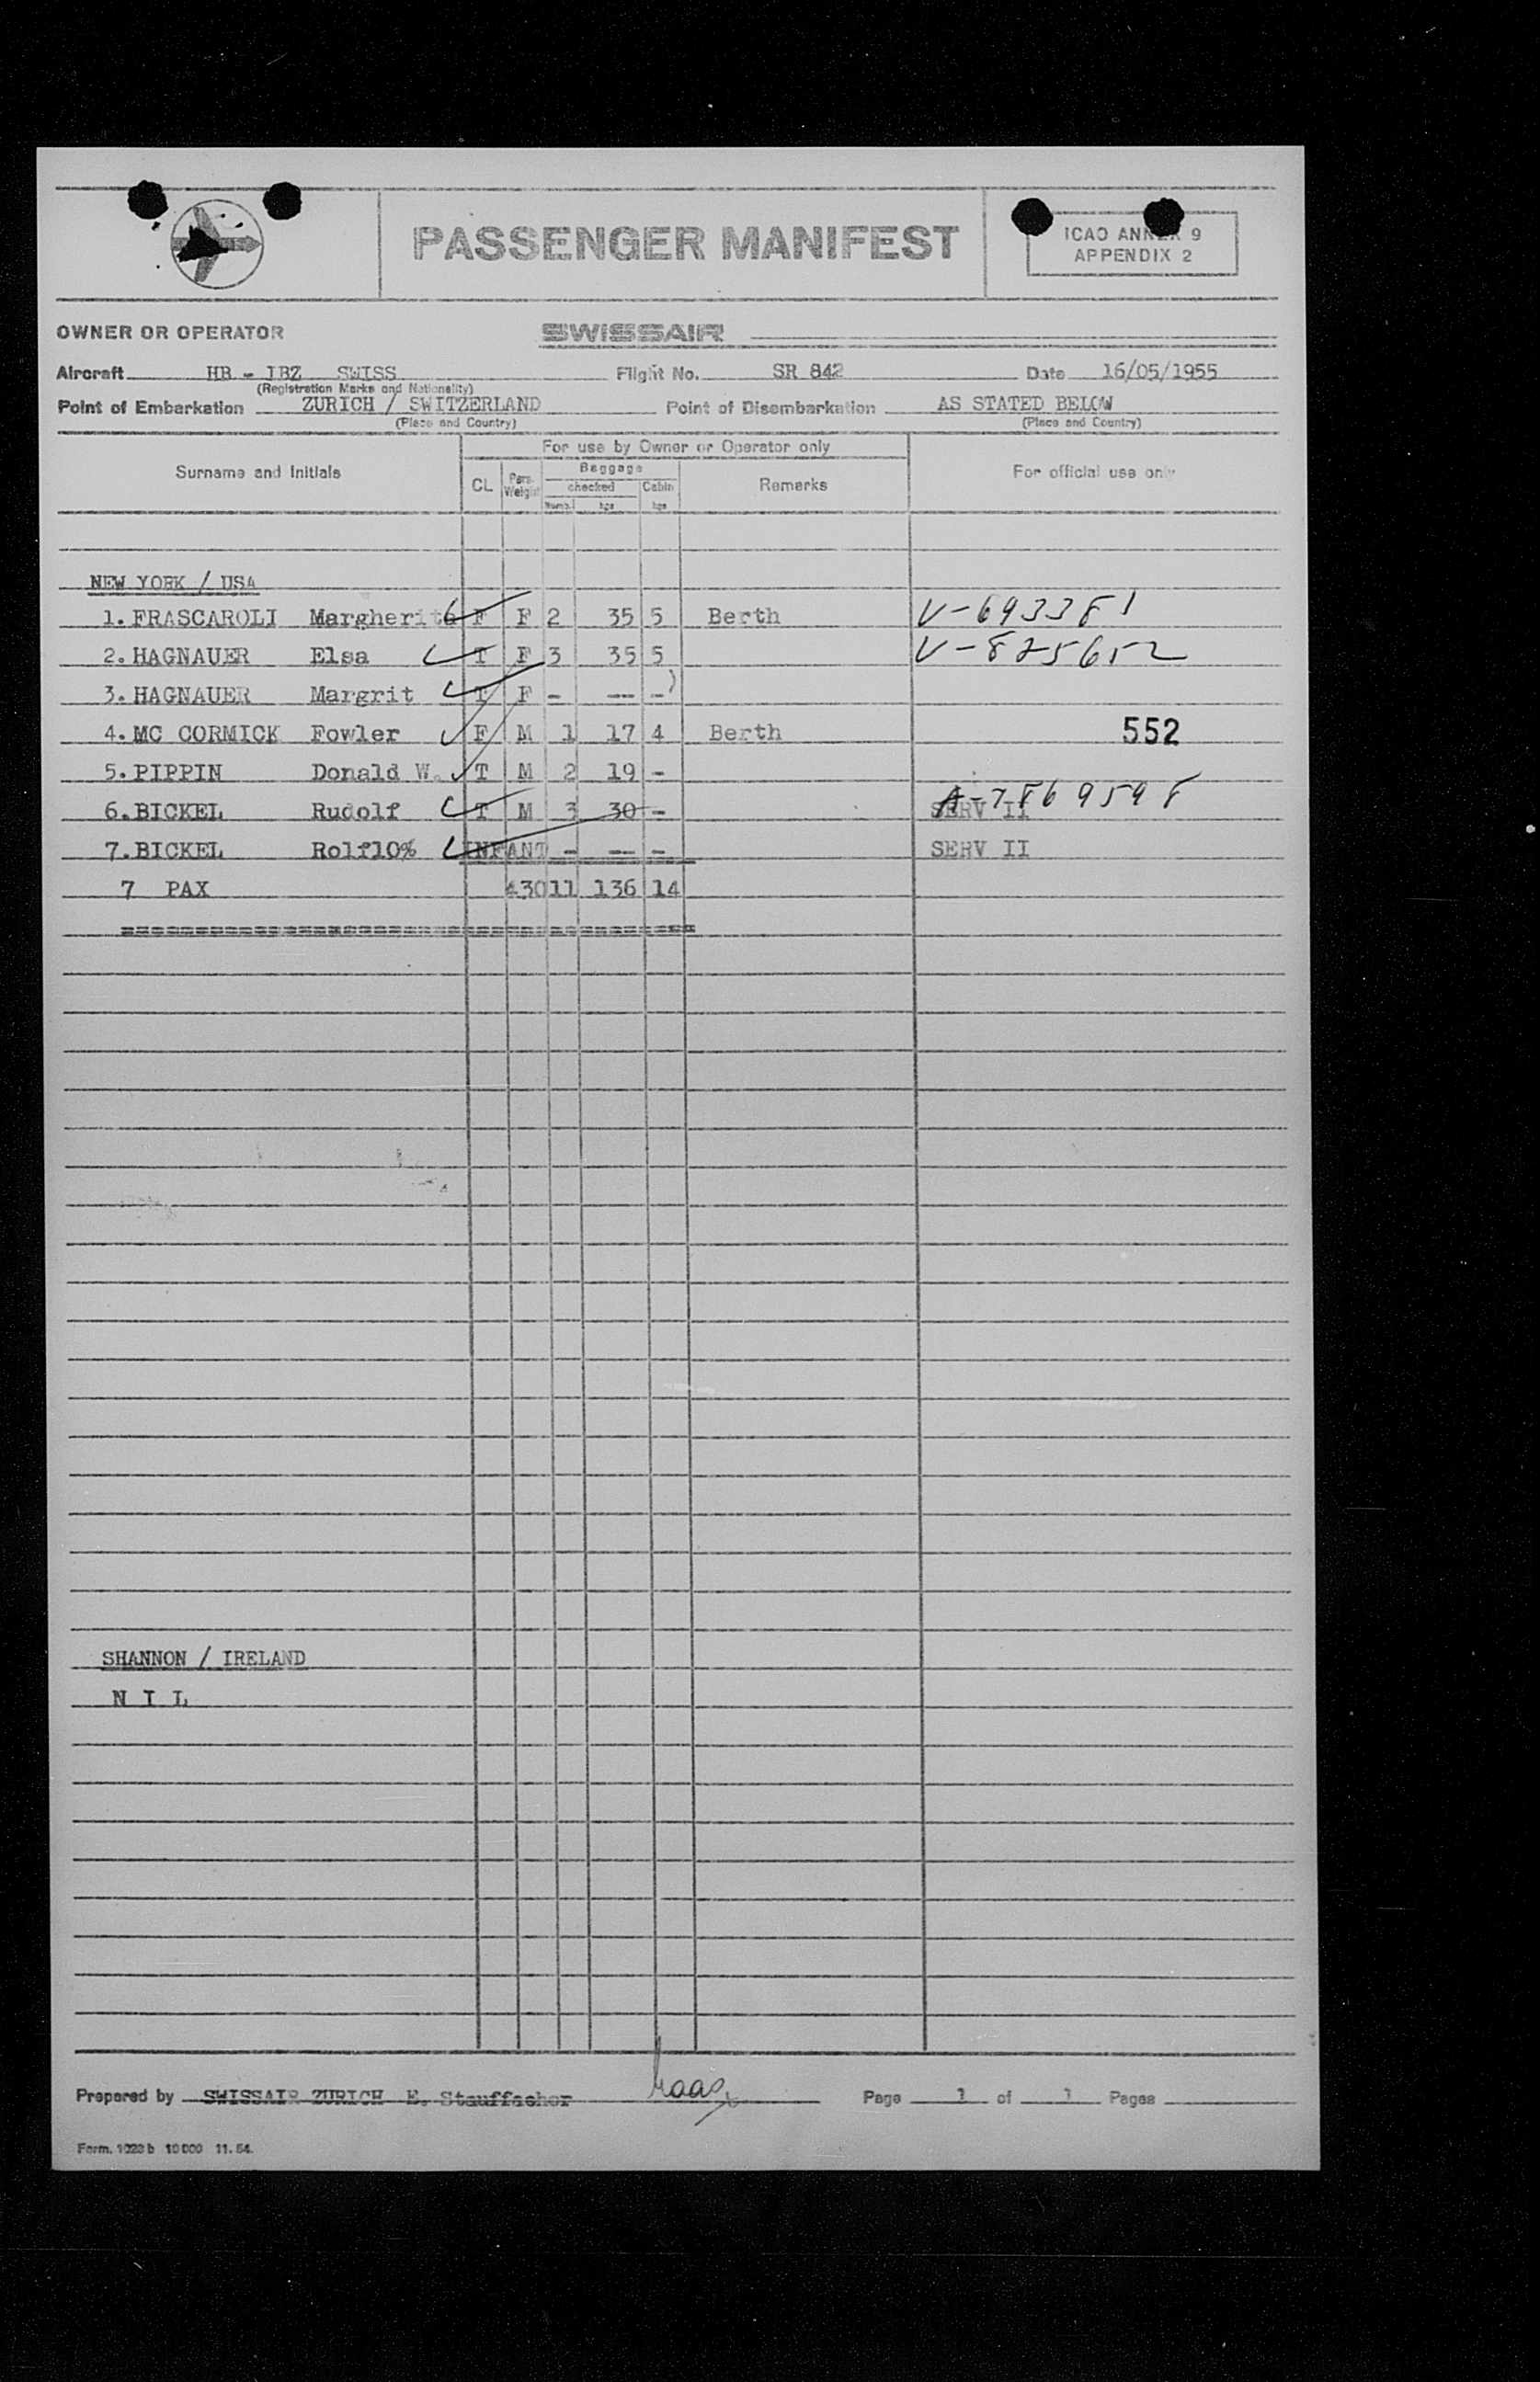 PASSENGER MANIFEST
ICAO ANNEX 9
APPENDIX 2
OWNER OR OPERATOR SWISSAIR
Aircraft HB - IBZ SWISS Flight No. SR 842 Date 16/05/1955
(Registration Marks and Nationality)
Point of Embarkation ZURICH / SWITZERLAND Point of Disembarkation AS STATED BELOW
(Place and Country) (Place and Country)
For use by Owner or Operator only
Surname and Initials CL Pers. Weight Baggage Remarks For official use only
checked Cabin
Numb. kgs kgs
NEW YORK / USA
1. FRASCAROLI Margherita F F 2 35 5 Berth V-693381
2. HAGNAUER Elsa T F 3 35 5 V-825652
3. HAGNAUER Margrit T F - -- -)
4. MC CORMICK Fowler F M 1 17 4 Berth 552
5. PIPPIN Donald W. T M 2 19 -
6. BICKEL Rudolf T M 3 30 - SERV II A-7869598
7. BICKEL Rolf10% INFANT - -- - SERV II
7 PAX 430 11 136 14
SHANNON / IRELAND
N I L
Prepared by SWISSAIR ZURICH E. Stauffacher Page 1 of 1 Pages
Form. 1023 b 10 000 11. 54.